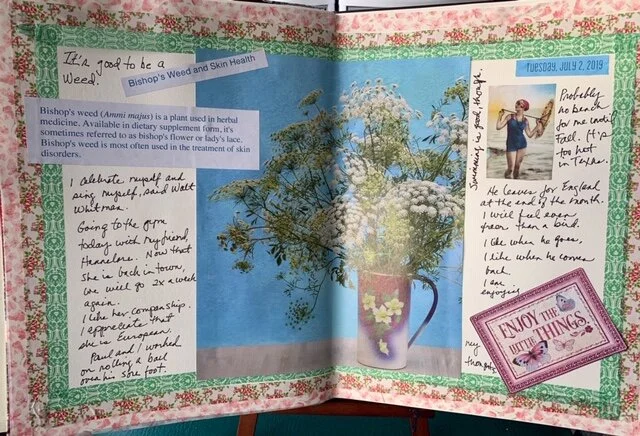 It's good to be a
Weed.
Bishop's Weed and Skin Health
Bishop's weed (Ammi majus) is a plant used in herbal
medicine. Available in dietary supplement form, it's
sometimes referred to as bishop's flower or lady's lace.
Bishop's weed is most often used in the treatment of skin
disorders.
I celebrate myself and
sing myself, said Walt
Whitman.
Going to the gym
today with my friend
Hannelore. Now that
she is back in town,
we will go 2x a week
again.
I like her companship.
I appreciate that
she is European.
Paul and I worked
on rolling a ball
over his sore foot.
Swimming is good though.
TUESDAY, JULY 2, 2019
Probably
no beach
for me until
Fall. It's
too hot
in Texas.
He leaves for England
at the end of the month.
I will feel even
freer than a bird.
I like when he goes,
I like when he comes
back.
I am
enjoying
my
thoughts
ENJOY THE
little THINGS